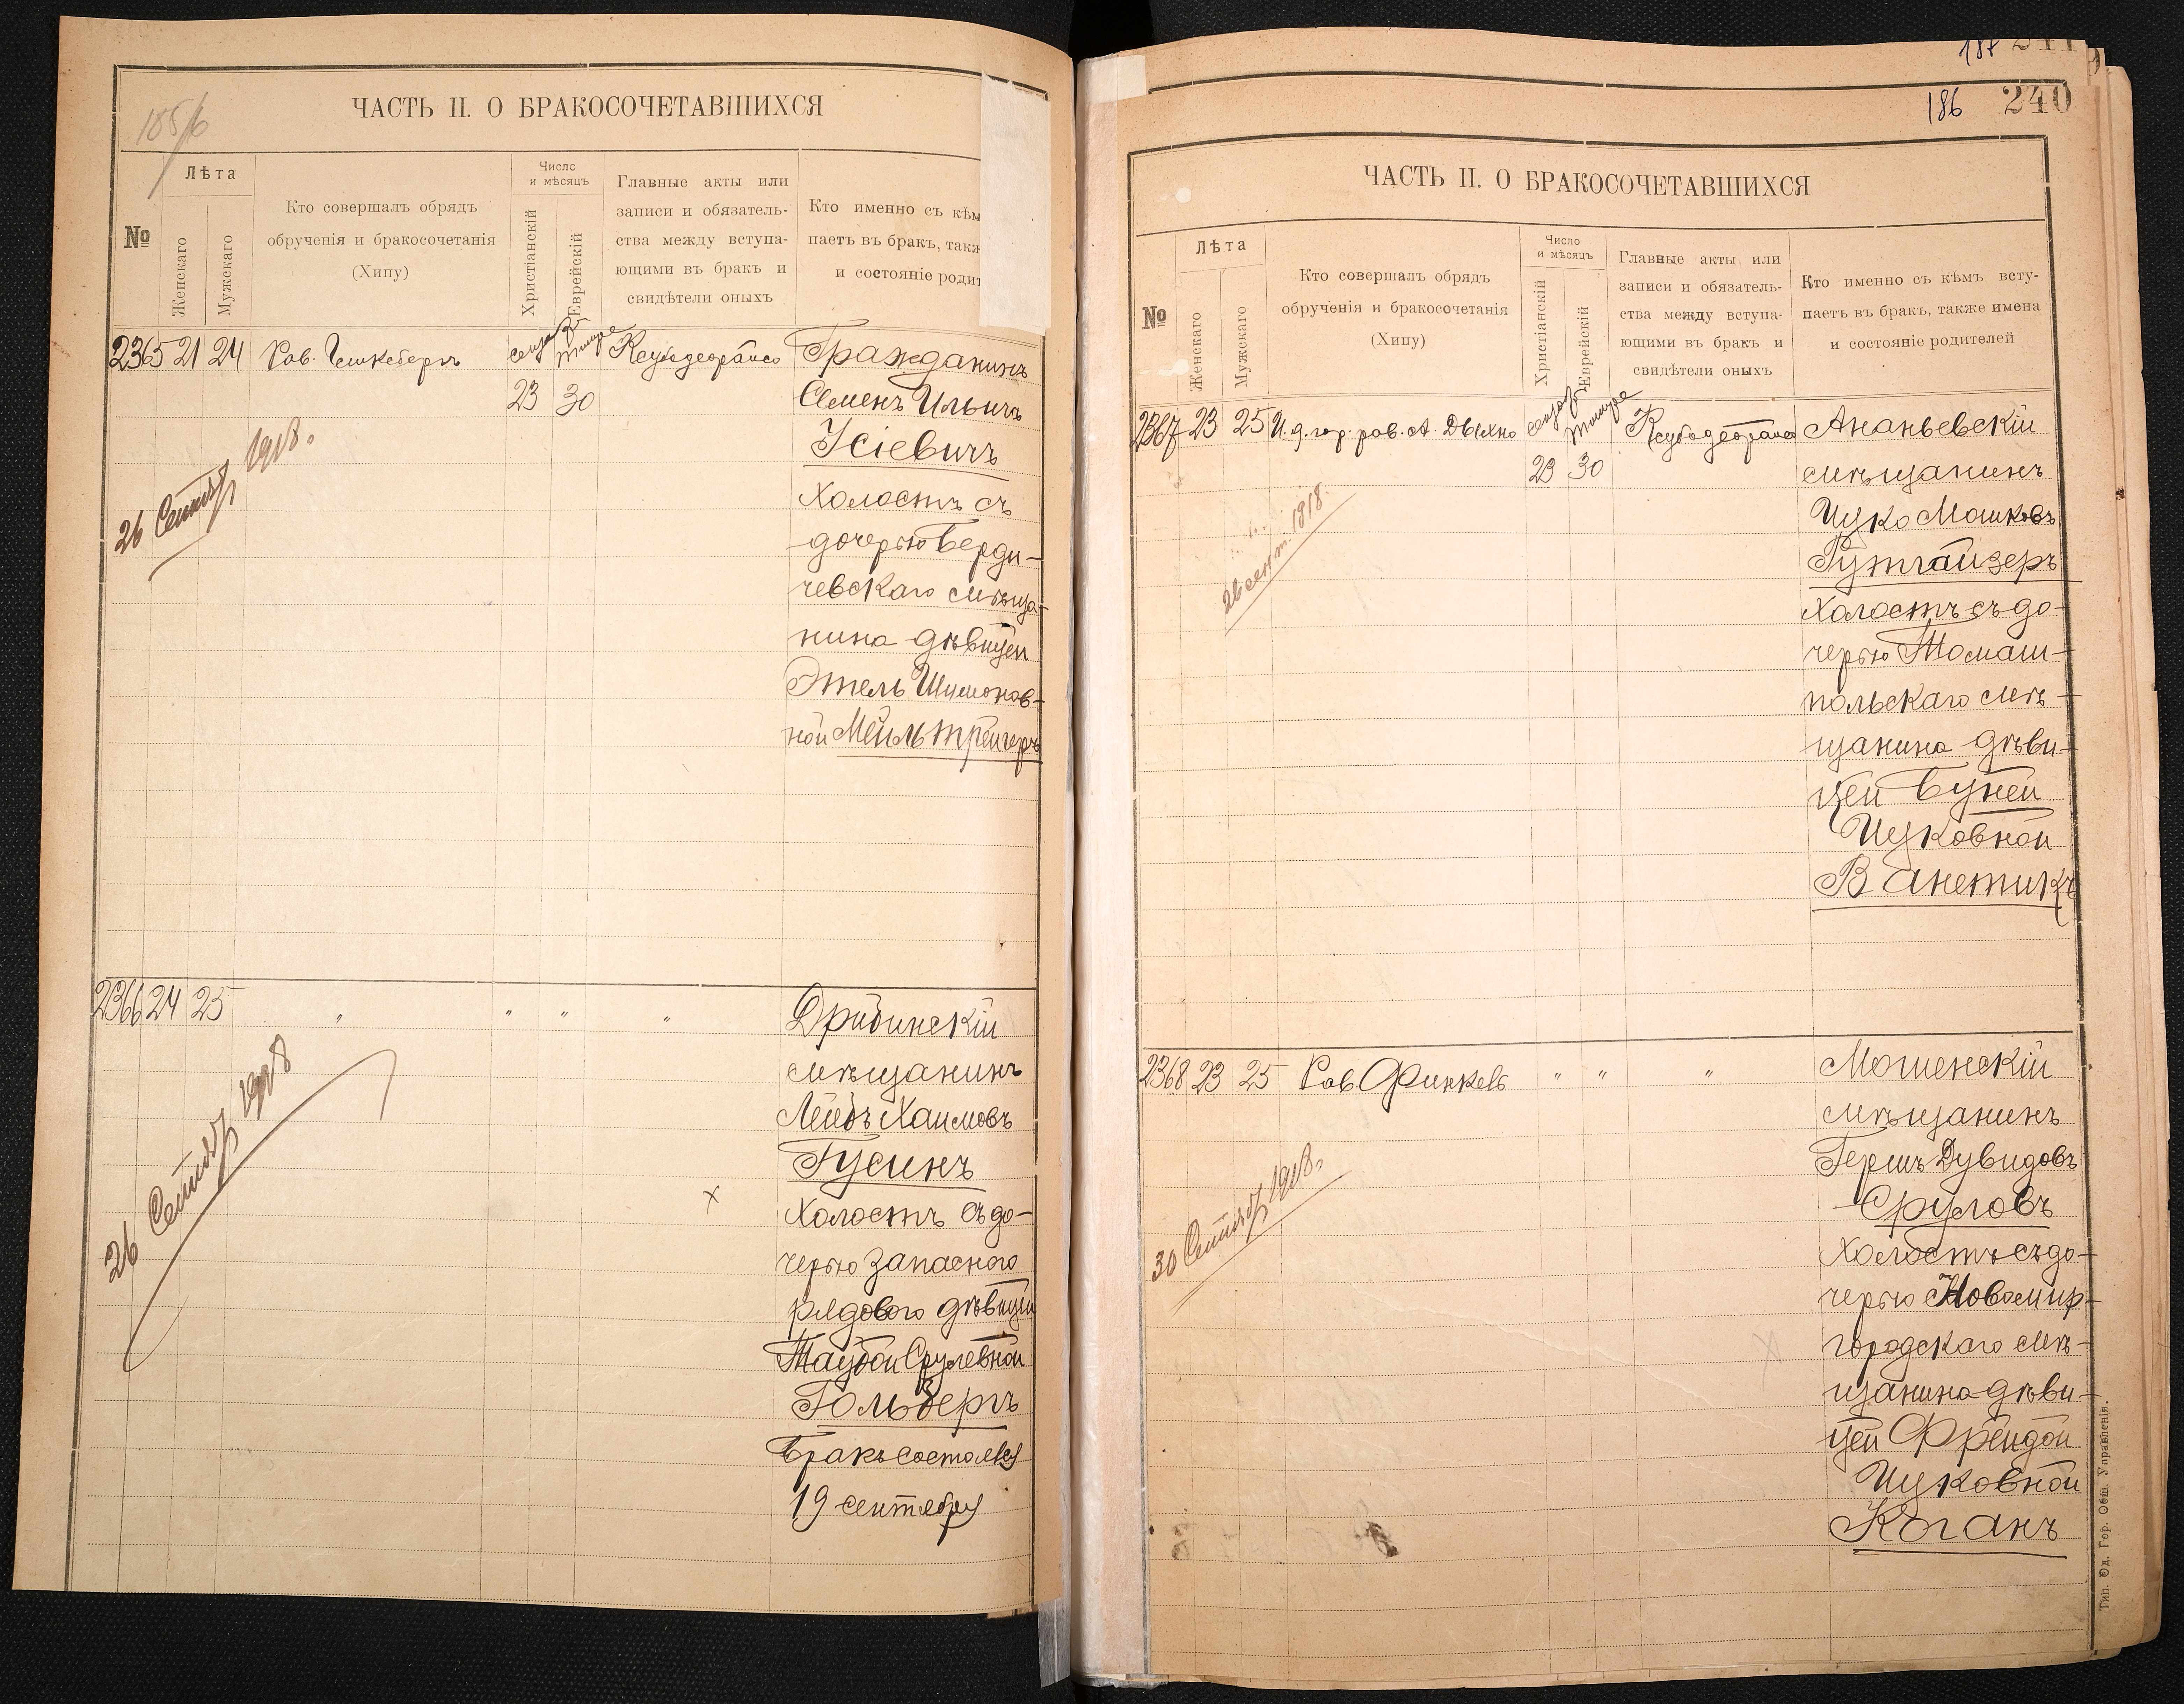 185/6
ЧАСТЬ II. О БРАКОСОЧЕТАВШИХСЯ
№
Лѣта
Женскаго
Мужскаго
Кто совершалъ обрядъ
обрученія и бракосочетанія
(Хипу)
Число
и мѣсяцъ
Христіанскій
Еврейскій
Главные акты или
записи и обязатель-
ства между вступа-
ющими въ бракъ и
свидѣтели оныхъ
Кто именно съ кѣм
паетъ въ бракъ, такж
и состояніе родит
2365 21 24 Рав.
23 30
Гражданинъ
Семенъ Ильичъ
Усіевичъ
холостъ съ
дочерью Берди-
чевскаго мѣща-
нина дѣвицей
Этель Шимонов-
ной Мейльтрейгеръ
26 Сентяб 1918.
2366 24 25 " " " "
Дрибинскій
мѣщанинъ
Лейбъ Хаимовъ
Гусинъ
холостъ съ до-
черью запасного
рядового дѣвицей
Таубой Срулевной
Гольбергъ
Бракъ состоялся
19 сентября
26 Сентяб 1918
187 241
186 240
ЧАСТЬ II. О БРАКОСОЧЕТАВШИХСЯ
№
Лѣта
Женскаго
Мужскаго
Кто совершалъ обрядъ
обрученія и бракосочетанія
(Хипу)
Число
и мѣсяцъ
Христіанскій
Еврейскій
Главные акты или
записи и обязатель-
ства между вступа-
ющими въ бракъ и
свидѣтели оныхъ
Кто именно съ кѣмъ всту-
паетъ въ бракъ, также имена
и состояніе родителей
2367 23 25 И. д. гор. рав. А. Дыхно
23 30
Ананьевскій
мѣщанинъ
Ицко Мошковъ
Гутгайзеръ
холостъ съ до-
черью Томаш-
польскаго мѣ-
щанина дѣви-
цей Буней
Ицковной
Ванетикъ
26 сент. 1918.
2368 23 25 Рав. Финкель " " "
Могиенскій
мѣщанинъ
Гершъ Дувидовъ
Сруловъ
холостъ съ до-
черью Новомир-
городскаго мѣ-
щанина дѣви-
цей Фрейдой
Ицковной
Коганъ
30 Сентяб 1918.
Тип. Од. Гор. Общ. Управленія.